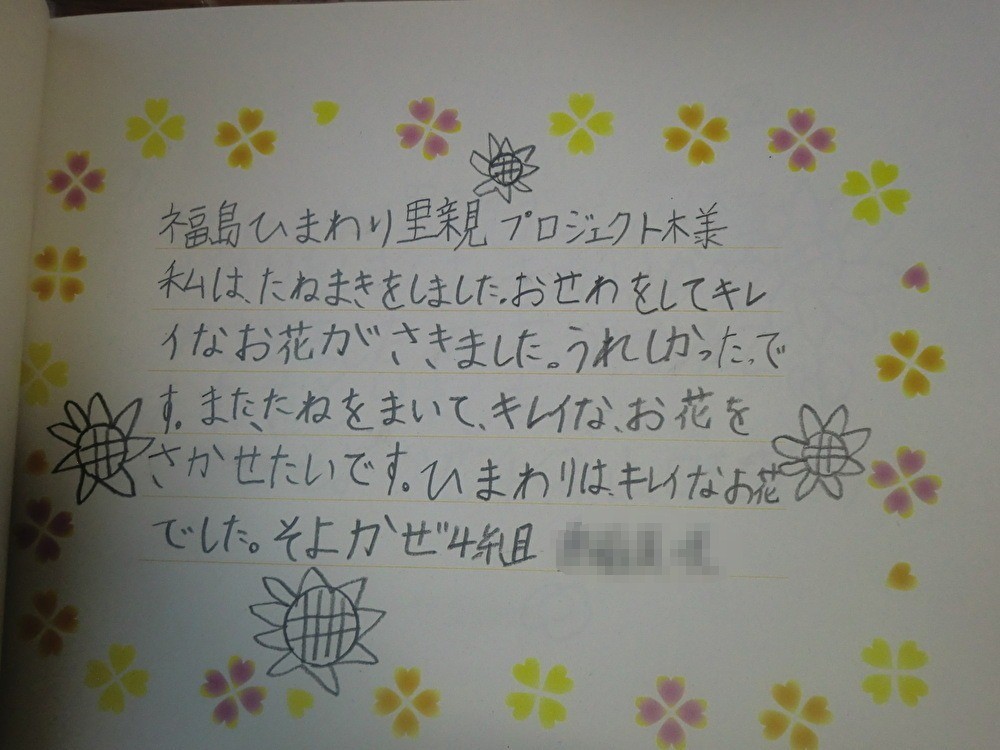 福島ひまわり里親プロジェクト様
私は、たねまきをしました。おせわをしてキレ
イなお花がさきました。うれしかったで
す。また、たねをまいて、キレイな、お花を
さかせたいです。ひまわりは、キレイなお花
でした。そよかぜ4組